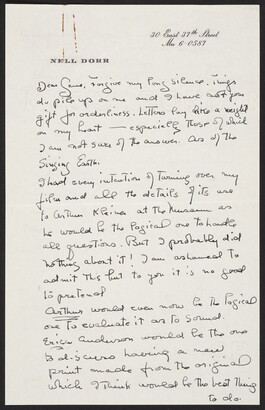 30 East 37th Street
Mu 6-0587
NELL DORR
Dear Gene, Forgive my long silence. Things
do pile up on me and I have not your
gift for orderliness. Letters lay like a weight
on my heart — especially those of which
I am not sure of the answer. As of the
Singing Earth.
I had every intention of turning over my
film and all the details of its use
to Arthur Kleiner at the Museum as
he would be the logical one to handle
all questions. But I probably did
nothing about it! I am ashamed to
admit this but to you it is no good
to pretend
Arthur would even now be the logical
one to evaluate it as to sound.
Erica Anderson would be the one
to discuss having a new
print made from the original
which I think would be the best thing
to do.